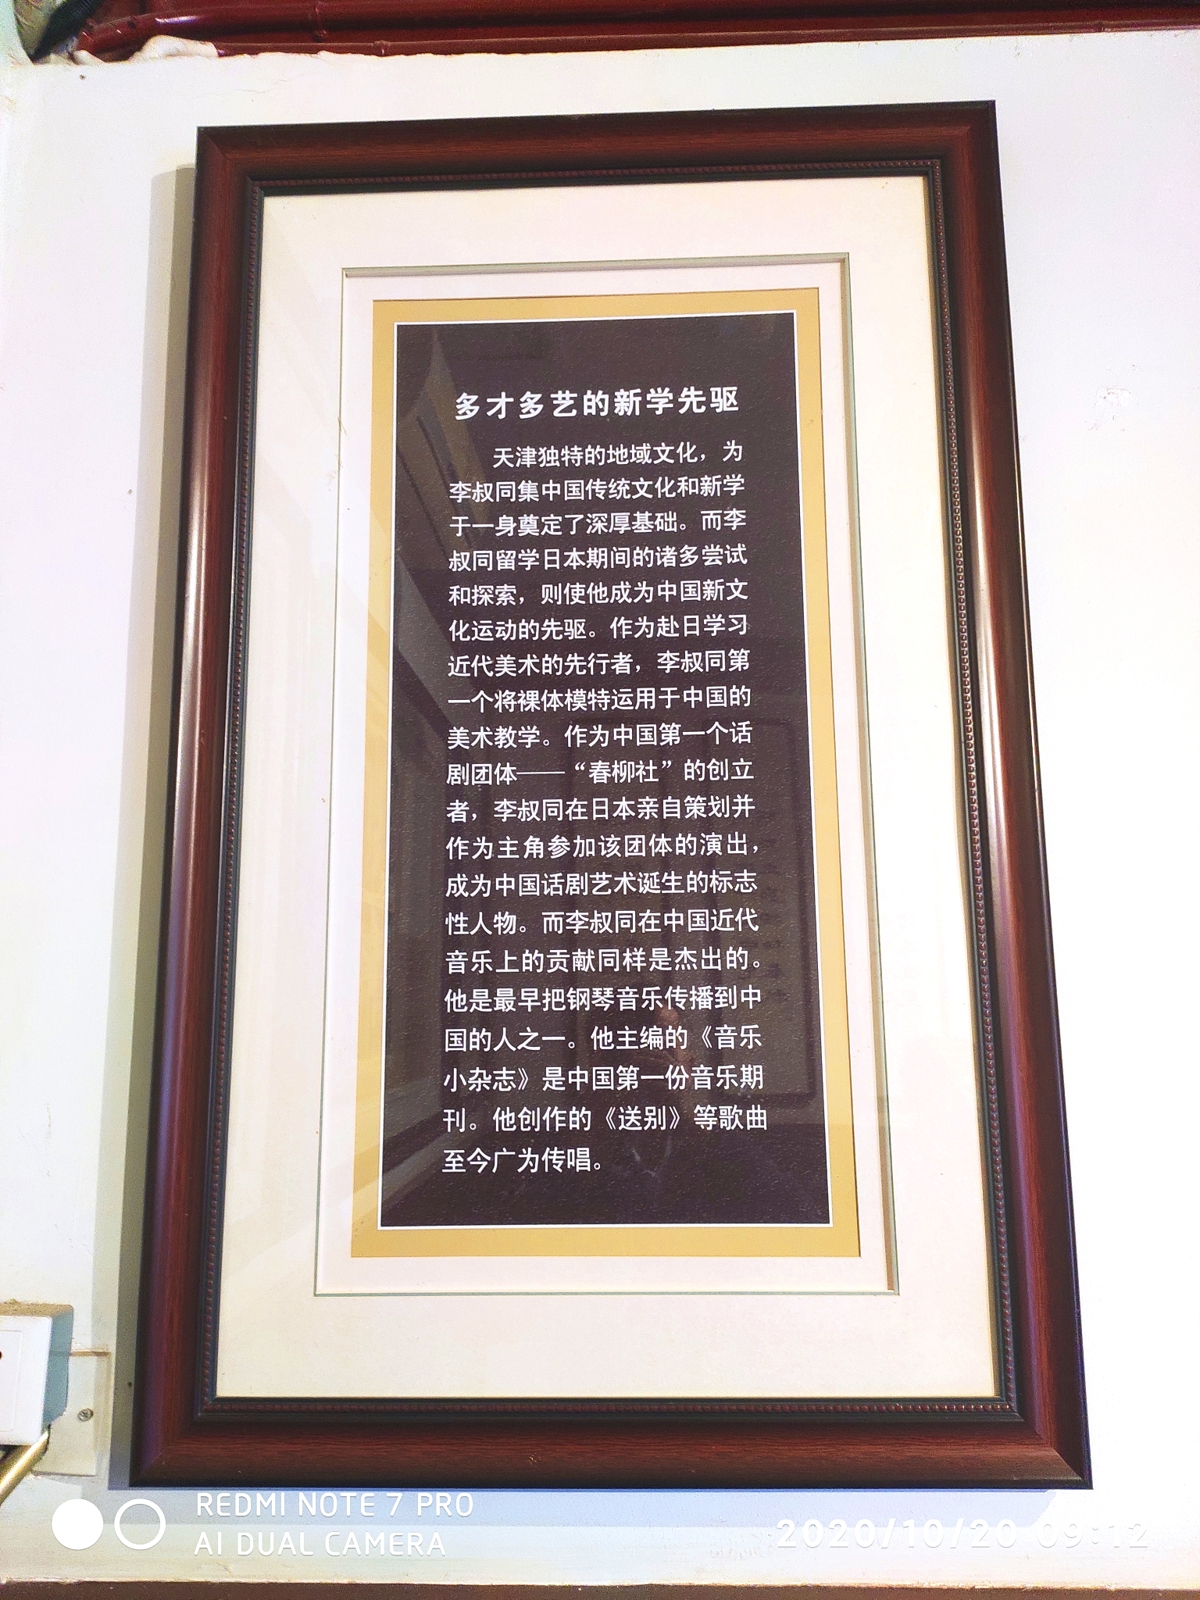 多才多艺的新学先驱
天津独特的地域文化，为
李叔同集中国传统文化和新学
于一身奠定了深厚基础。而李
叔同留学日本期间的诸多尝试
和探索，则使他成为中国新文
化运动的先驱。作为赴日学习
近代美术的先行者，李叔同第
一个将裸体模特运用于中国的
美术教学。作为中国第一个话
剧团体——“春柳社”的创立
者，李叔同在日本亲自策划并
作为主角参加该团体的演出，
成为中国话剧艺术诞生的标志
性人物。而李叔同在中国近代
音乐上的贡献同样是杰出的。
他是最早把钢琴音乐传播到中
国的人之一。他主编的《音乐
小杂志》是中国第一份音乐期
刊。他创作的《送别》等歌曲
至今广为传唱。
REDMI NOTE 7 PRO
AI DUAL CAMERA
2020/10/20 09:12